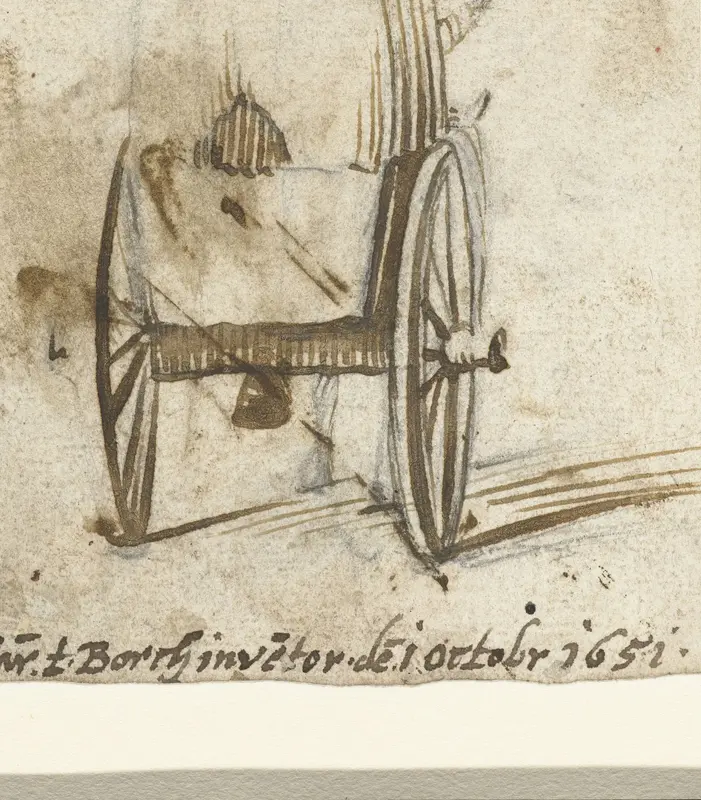 Har̄. t. Borch invētor. dē. 1 Octobr 1651.